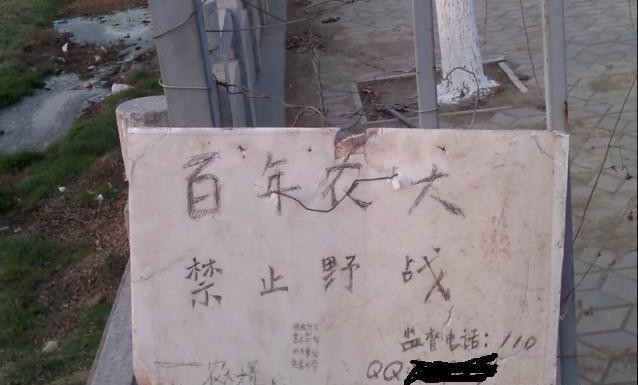 百年农大
禁止野战
监督电话：110
QQ